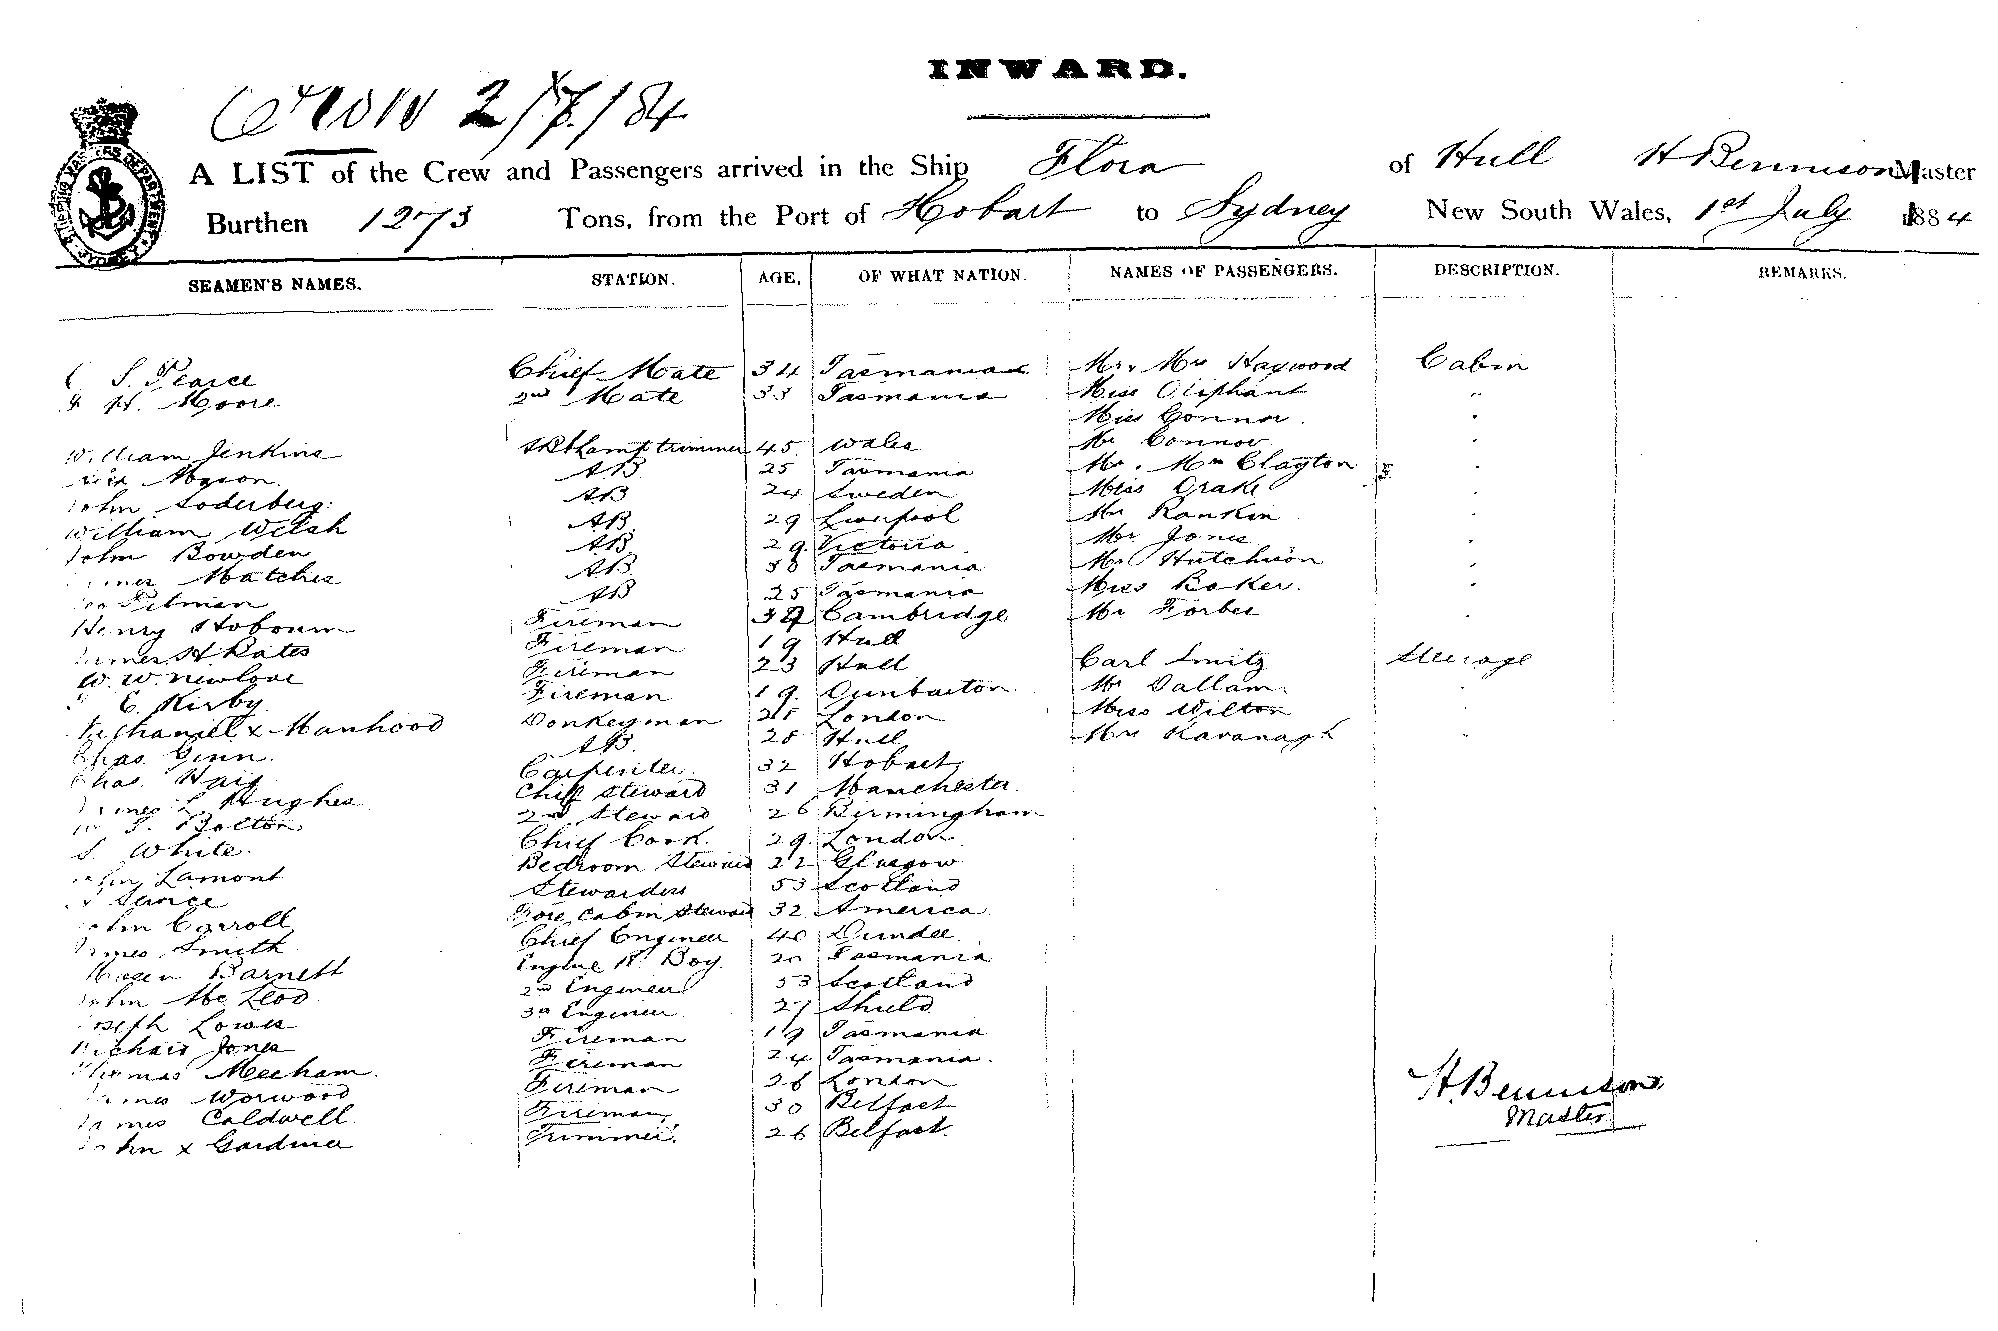 INWARD.
2/7/84
A LIST of the Crew and Passengers arrived in the Ship Flora of Hull H Bennison Master
Burthen 1273 Tons, from the Port of Hobart to Sydney New South Wales, 1st July 1884
SEAMEN'S NAMES. STATION. AGE. OF WHAT NATION. NAMES OF PASSENGERS. DESCRIPTION. REMARKS.
S. Pearce Chief Mate 34 Tasmania Mr. Mrs Haywood Cabin
H. Moore 2nd Mate 33 Tasmania Miss Oliphant "
Miss Connor "
William Jenkins AB & Lamptrimmer 45 Wales Mr Connor "
Myson. AB 25 Tasmania Mr. Mrs Clayton "
John Soderberg AB 24 Sweden Miss Drake "
William Welsh AB 29 Liverpool Mr Rankin "
John Bowden AB 29. Victoria Mr Jones "
James Matches AB 38 Tasmania Mr Hutchison "
Pitman AB 25 Tasmania Miss Baker. "
Henry Hobourn Fireman Cambridge Mr Forbes "
James H Bates Fireman 19 Hull
W. W. Newlove Fireman 23 Hull Carl Smitz Steerage
E. Kirby. Fireman 19. Dunbarton Mr Dallam "
Nathaniell x Manhood Donkeyman London Miss Wilton "
Chas. Ginn. AB. 28 Hull Mrs Kavanagh "
Chas. Haig Carpenter 32 Hobart
James L Hughes Chief Steward 31 Manchester
W. S. Bolton 2nd Steward 26 Birmingham
S. White. Chief Cook. 29. London
John Lamont Bedroom Steward 22 Glasgow
Stewardess 53 Scotland
John Carroll Fore Cabin Steward 32 America
James Smith Chief Engineer 40 Dundee
Barnett Engine R. Boy. 20 Tasmania
John McLeod 2nd Engineer 53 Scotland
Joseph Lowes 3rd Engineer 27 Shield
Richard Jones Fireman 19 Tasmania
Thomas Meeham. Fireman 24 Tasmania.
James Worwood Fireman 26 London
James Caldwell Fireman 30 Belfast
John x Gardiner Trimmer. 26 Belfast.
H. Bennison
Master